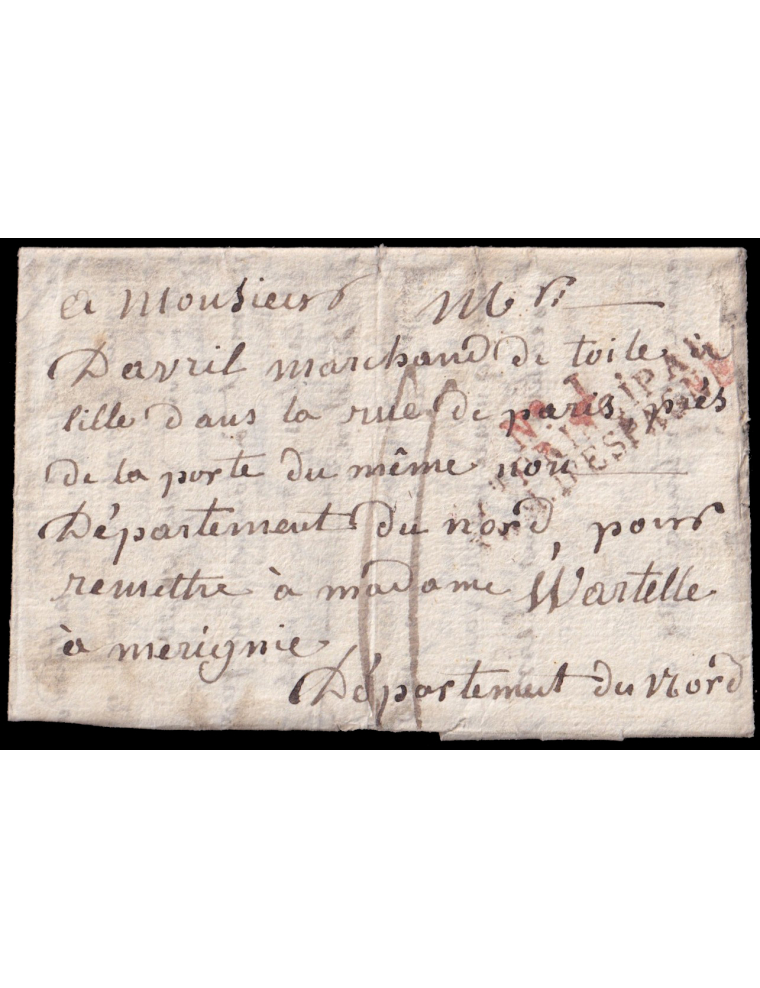 a Monsieur Mr.
Davril marchand de toile à
lille dans la rue de paris, près
de la porte du même nou
Département du nord, pour
remettre à madame Wartelle
à merignie
Département du Nord
No. 1
PRINCIPAL
D'ESPAGNE